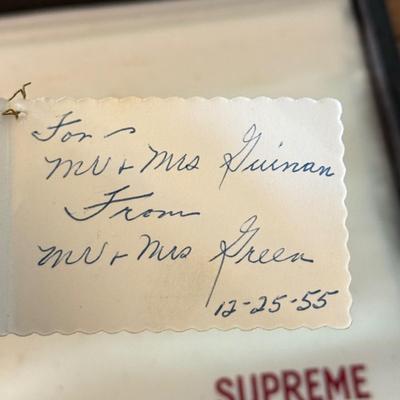 For
Mr + Mrs Guinan
From
Mr + Mrs Green
12-25-55
SUPREME